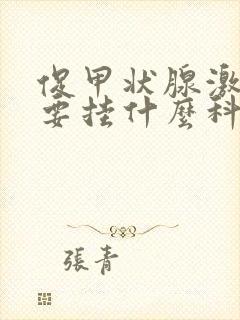 促甲状腺激
要挂什麼科
張青